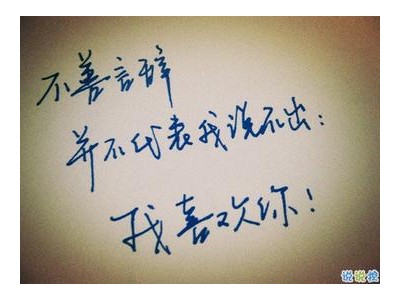 不善言辞
并不代表我说不出:
我喜欢你!
说说控